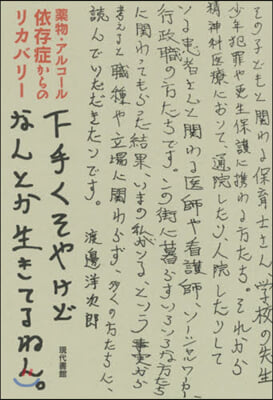 その子どもと関わる保育士さん、学校の先生
少年犯罪や更生保護に携わる方たち。それから
精神科医療において、通院したり、入院したりして
いる患者さんと関わる医師や看護師、ソーシャルワーカー、
行政職の方たちです。この街に暮らすいろいろな方たち
に関わってもらった結果、いまの私がいる、という事実から
考えると職種や立場に関わらず、多くの方たちに、
読んでいただきたいです。 渡邊洋次郎
薬物・アルコール
依存症からの
リカバリー
下手くそやけど
なんとか生きてるねん。
現代書館